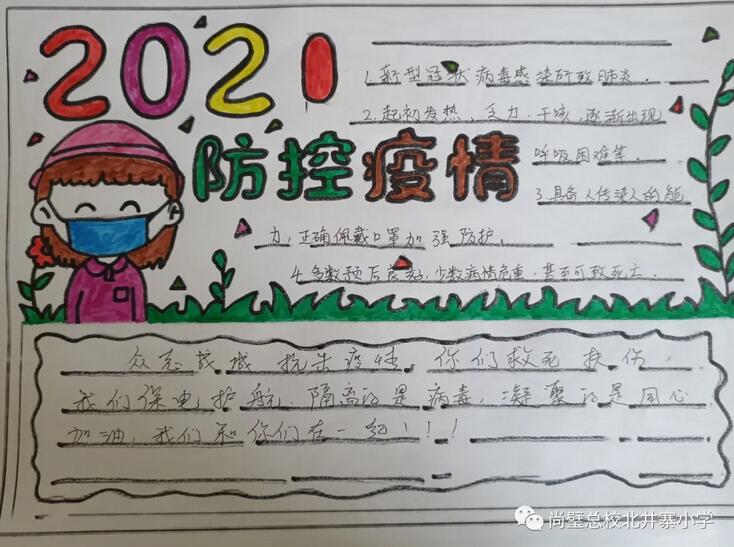 2021
防控疫情
1.新型冠状病毒感染所致肺炎.
2.起初发热、乏力.干咳,逐渐出现
呼吸困难等.
3.具备人传染人的能
力,正确佩戴口罩加强防护.
4.多数预后良好,少数病情危重,甚至可致死亡.
众志成城 抗击疫情,你们救死扶伤,
我们保电护航.隔离的是病毒,凝聚的是同心
加油,我们和你们在一起!!!
尚璧总校北井寨小学